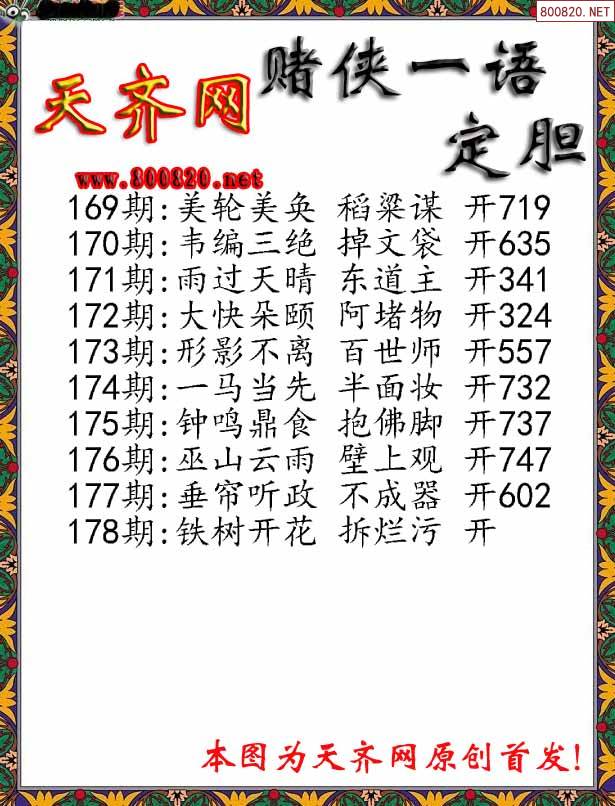 800820.NET
天齐网
赌侠一语
定胆
www.800820.net
169期:美轮美奂 稻粱谋 开719
170期:韦编三绝 掉文袋 开635
171期:雨过天晴 东道主 开341
172期:大快朵颐 阿堵物 开324
173期:形影不离 百世师 开557
174期:一马当先 半面妆 开732
175期:钟鸣鼎食 抱佛脚 开737
176期:巫山云雨 壁上观 开747
177期:垂帘听政 不成器 开602
178期:铁树开花 拆烂污 开
本图为天齐网原创首发!